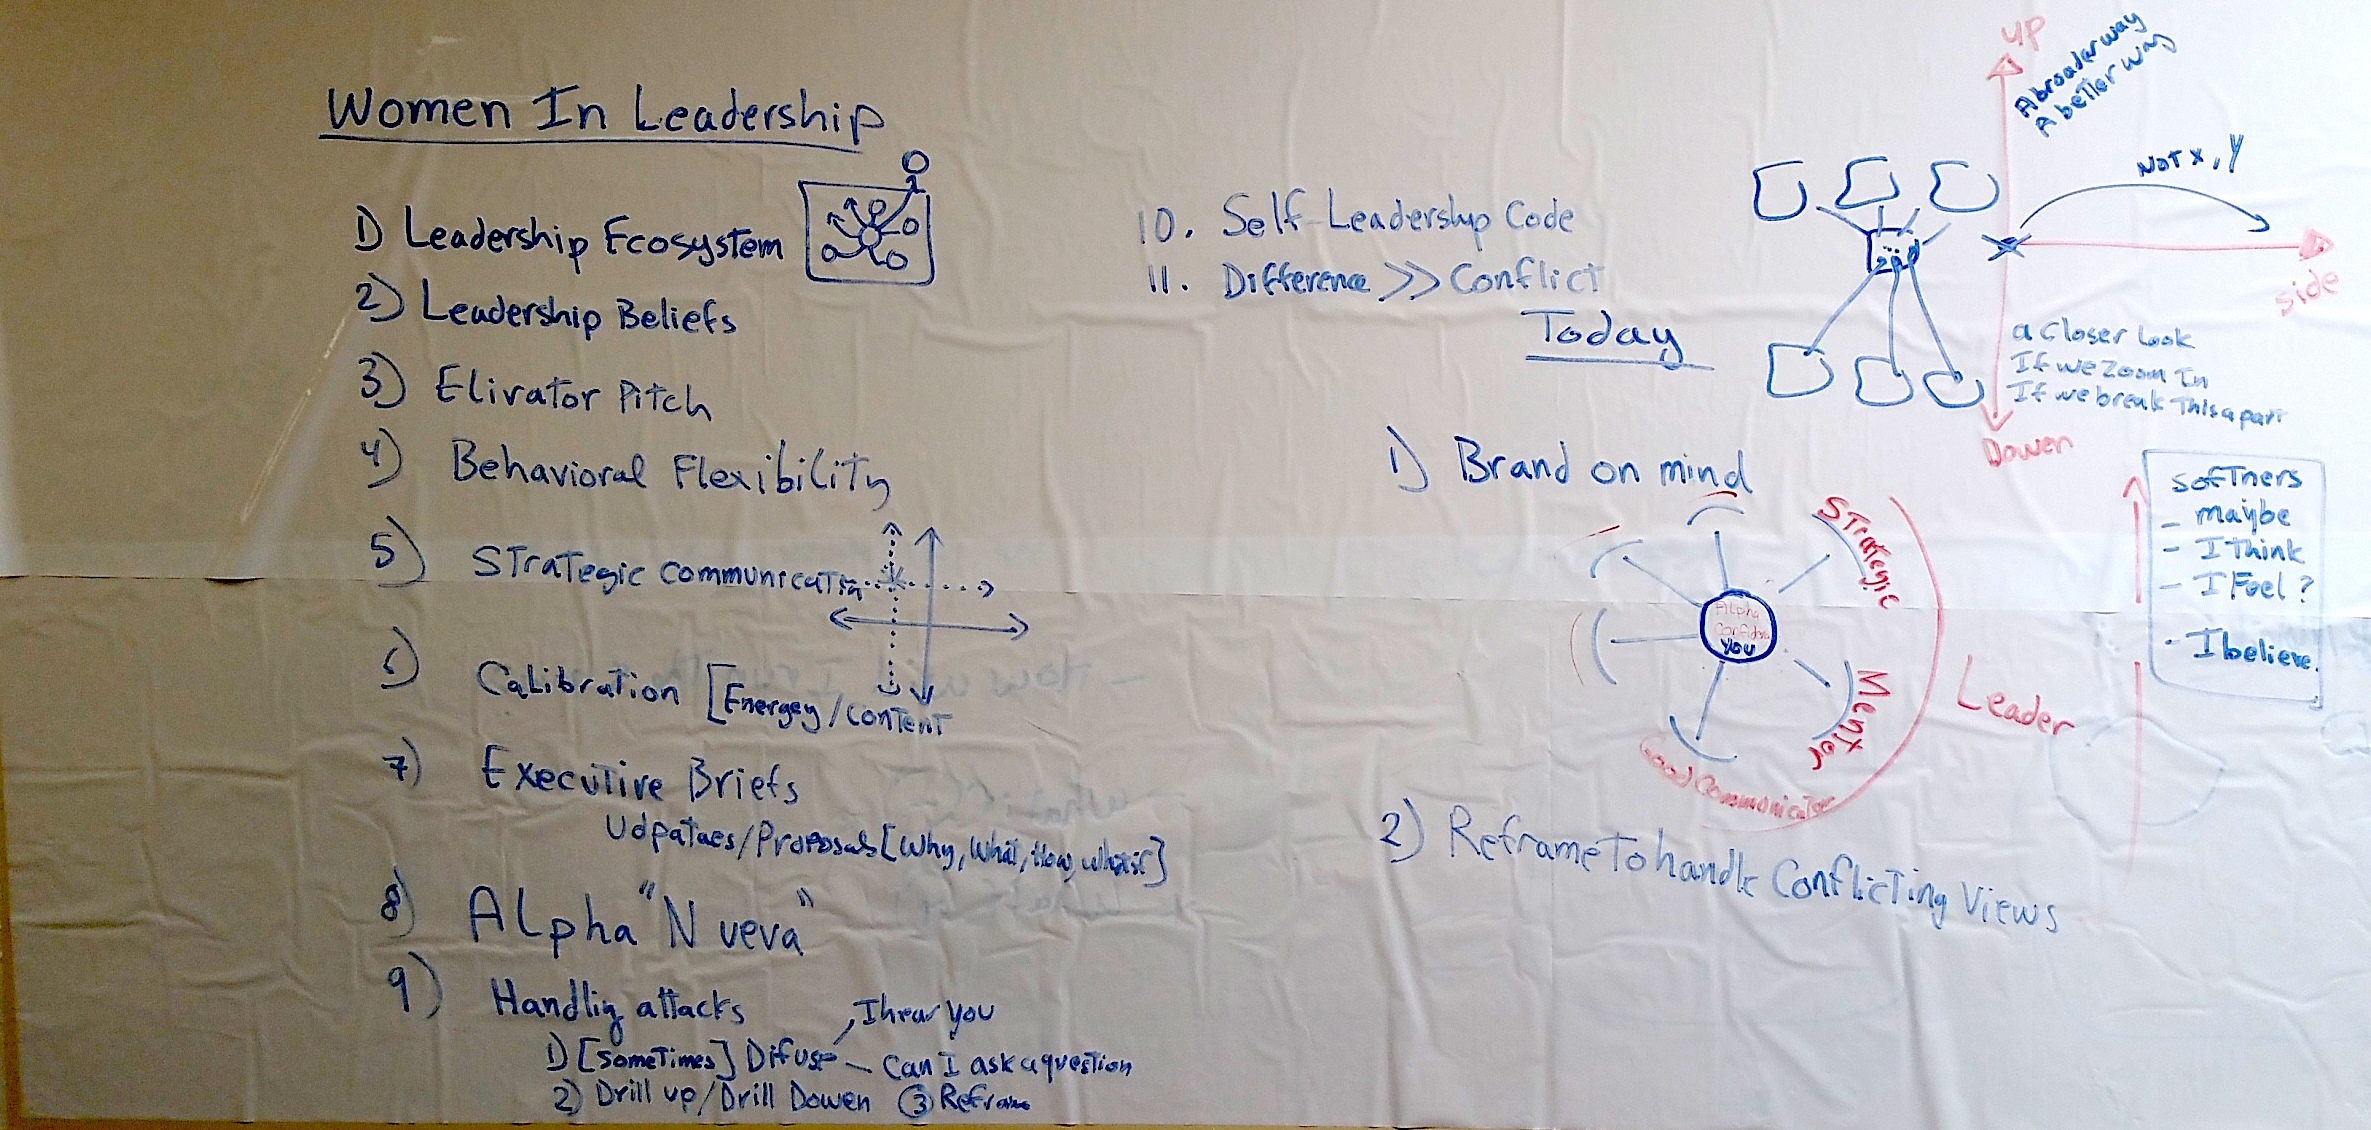 Women In Leadership
1) Leadership Ecosystem
2) Leadership Beliefs
3) Elivator Pitch
4) Behavioral Flexibility
5) Strategic communicatin
6) Calibration [Energey/content
7) Executive Briefs
Udpataes/Proposals [Why, What, How, what if]
8) Alpha "Nueva"
9) Handlig attacks
1) [sometimes] Difuse
I hear you
Can I ask a question
2) Drill up/Drill Dowen ③ Reframe
10. Self-Leadership Code
11. Difference >> Conflict
Today
1) Brand on mind
Alpha
Confidence
You
Strategic
Mentor
Good Communicator
Leader
2) Reframe To handle Conflicting Views
up
A broader way
A better way
Not x, y
side
a closer look
If we zoom In
If we break This apart
Dowen
softners
- maybe
- I Think
- I Feel?
- I believe.